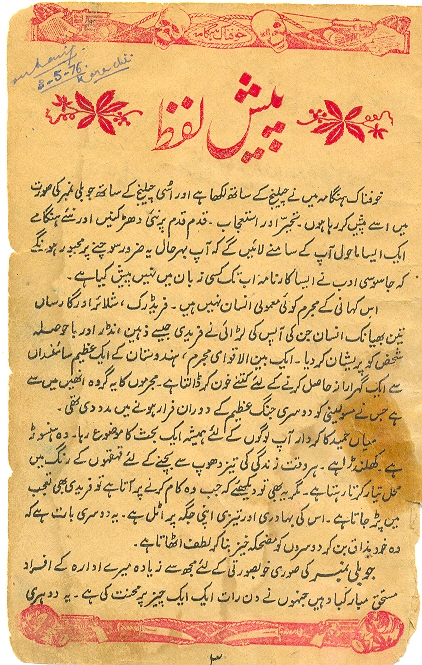 خوفناک ہنگامہ
m Hanif
8-5-76
Karachi
پیش لفظ
خوفناک ہنگامہ میں نے چیلنج کے ساتھ لکھا ہے اور اُسی چیلنج کے ساتھ جوبلی نمبر کی صورت
میں اسے پیش کر رہا ہوں۔ تحیّر اور استعجاب۔ قدم قدم پر نئی دھڑکنیں اور نئے ہنگامے
ایک ایسا ماحول آپ کے سامنے لائیں گے کہ آپ بہرحال یہ ضرور سوچنے پر مجبور ہونگے
کہ جاسوسی ادب نے ایسا کارنامہ اب تک کسی زبان میں نہیں پیش کیا ہے۔
اس کہانی کے مجرم کوئی معمولی انسان نہیں ہیں۔ فریڈرک، شلائر اور گارساں
تین بھیانک انسان جن کی آپس کی لڑائی نے فریدی جیسے ذہین، نڈر اور باحوصلہ
شخص کو پریشان کر دیا۔ ایک بین الاقوامی مجرم، ہندوستان کے ایک عظیم سائنسداں
سے ایک گہرا راز حاصل کرنے کے لئے کتنے خون کر ڈالتا ہے۔ مجرموں کا یہ گروہ انھیں میں سے
ہے جس نے مسولینی کو دوسری جنگ عظیم کے دوران فرار ہونے میں مدد دی تھی۔
میاں حمید کا کردار آپ لوگوں کے لئے ہمیشہ ایک بحث کا موضوع رہا۔ وہ ہنسوڑ
ہے۔ کھلنڈرا ہے۔ ہر وقت زندگی کی تیز دھوپ سے بچنے کے لئے قہقہوں کے رنگین
محل تیار کرتا رہتا ہے۔ مگر یہ بھی تو دیکھئے کہ جب وہ کام کرنے پر آتا ہے تو فریدی بھی تعجب
میں پڑ جاتا ہے۔ اس کی بہادری اور تیزی اپنی جگہ پر اٹل ہے۔ یہ دوسری بات ہے کہ
وہ خود مذاق بن کر دوسروں کو مضحکہ خیز بنا کر لطف اٹھاتا ہے۔
جوبلی نمبر کی صوری خوبصورتی کے لئے مجھ سے زیادہ میرے ادارہ کے افراد
مستحق مبارکباد ہیں جنہوں نے دن رات ایک ایک چیز پر محنت کی ہے۔ یہ دوہری
۳